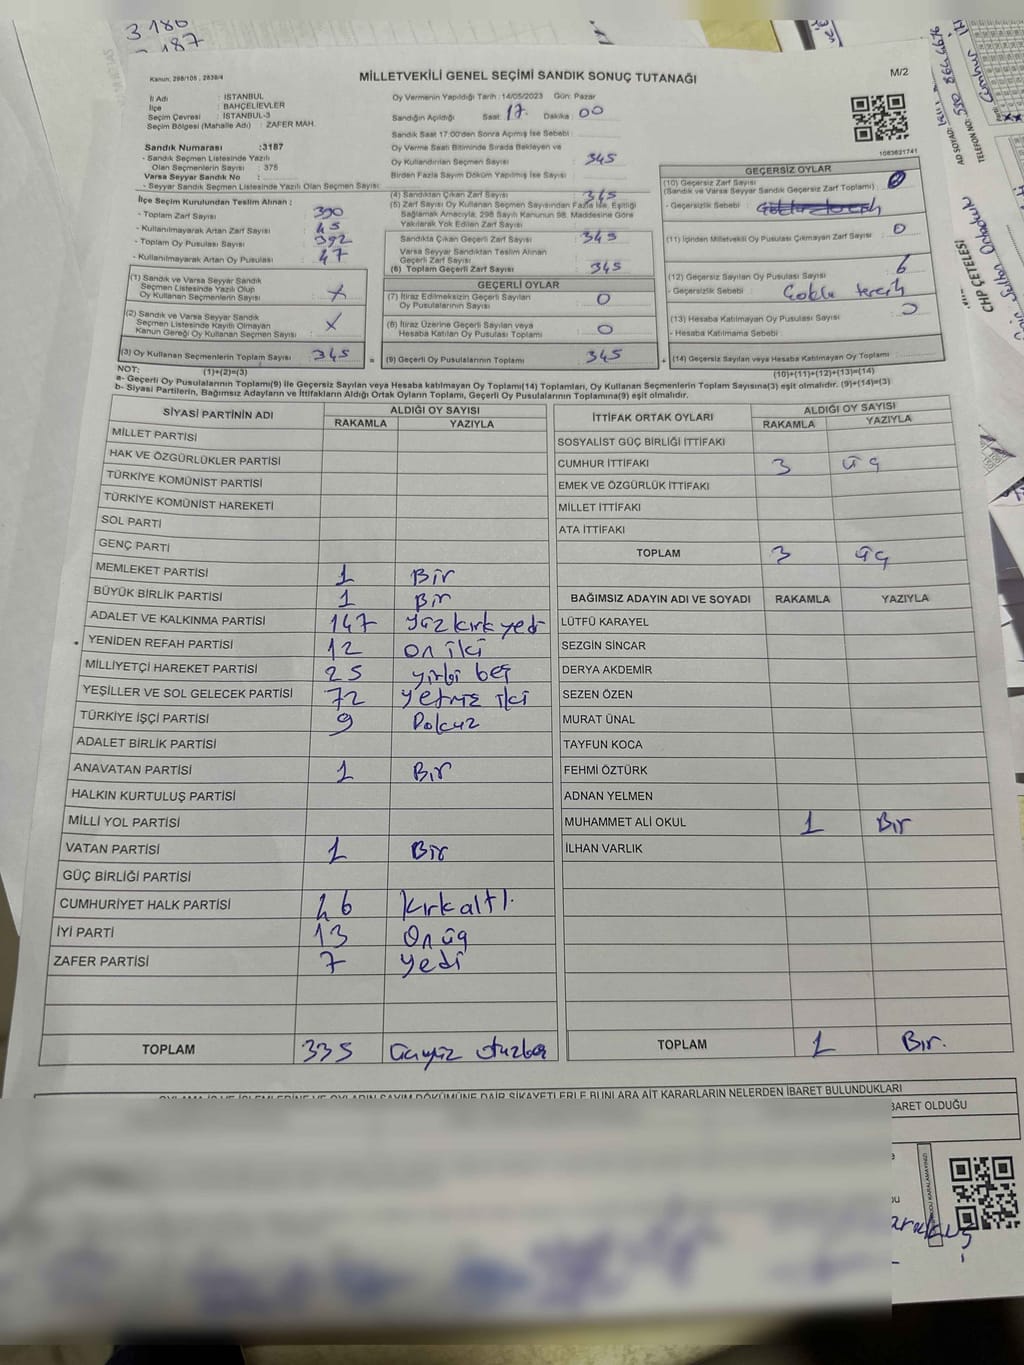 3186
3187
Kanun; 298/105 , 2839/4
MİLLETVEKİLİ GENEL SEÇİMİ SANDIK SONUÇ TUTANAĞI
M/2
İl Adı : İSTANBUL
İlçe : BAHÇELİEVLER
Seçim Çevresi : İSTANBUL-3
Seçim Bölgesi (Mahalle Adı) : ZAFER MAH.
Sandık Numarası :3187
- Sandık Seçmen Listesinde Yazılı
Olan Seçmenlerin Sayısı : 375
Varsa Seyyar Sandık No :
- Seyyar Sandık Seçmen Listesinde Yazılı Olan Seçmen Sayısı:
İlçe Seçim Kurulundan Teslim Alınan ;
- Toplam Zarf Sayısı 390
- Kullanılmayarak Artan Zarf Sayısı 45
- Toplam Oy Pusulası Sayısı 392
- Kullanılmayarak Artan Oy Pusulası 47
(1) Sandık ve Varsa Seyyar Sandık
Seçmen Listesinde Yazılı Olup
Oy Kullanan Seçmenlerin Sayısı X
(2) Sandık ve Varsa Seyyar Sandık
Seçmen Listesinde Kayıtlı Olmayan
Kanun Gereği Oy Kullanan Seçmen Sayısı X
(3) Oy Kullanan Seçmenlerin Toplam Sayısı 345
Oy Vermenin Yapıldığı Tarih :14/05/2023 Gün: Pazar
Sandığın Açıldığı Saat 17. Dakika 00
Sandık Saat 17:00'den Sonra Açılmış İse Sebebi :
Oy Verme Saati Bitiminde Sırada Bekleyen ve
Oy Kullandırılan Seçmen Sayısı : 345
Birden Fazla Sayım Döküm Yapılmış İse Sayısı :
(4) Sandıktan Çıkan Zarf Sayısı 345
(5) Zarf Sayısı Oy Kullanan Seçmen Sayısından Fazla İse, Eşitliği
Bağlamak Amacıyla, 298 Sayılı Kanunun 98. Maddesine Göre
Yakılarak Yok Edilen Zarf Sayısı
Sandıkta Çıkan Geçerli Zarf Sayısı : 345
Varsa Seyyar Sandıktan Teslim Alınan
Geçerli Zarf Sayısı
(6) Toplam Geçerli Zarf Sayısı 345
GEÇERLİ OYLAR
(7) İtiraz Edilmeksizin Geçerli Sayılan
Oy Pusulalarının Sayısı 0
(8) İtiraz Üzerine Geçerli Sayılan veya
Hesaba Katılan Oy Pusulası Toplamı 0
= (9) Geçerli Oy Pusulalarının Toplamı 345
1083621741
GEÇERSİZ OYLAR
(10) Geçersiz Zarf Sayısı
(Sandık ve Varsa Seyyar Sandık Geçersiz Zarf Toplamı) : 0
- Geçersizlik Sebebi :
(11) İçinden Milletvekili Oy Pusulası Çıkmayan Zarf Sayısı 0
(12) Geçersiz Sayılan Oy Pusulası Sayısı 6
- Geçersizlik Sebebi : Çoklu tercih
(13) Hesaba Katılmayan Oy Pusulası Sayısı : 0
- Hesaba Katılmama Sebebi
+ (14) Geçersiz Sayılan veya Hesaba Katılmayan Oy Toplamı
NOT: (1)+(2)=(3) (10)+(11)+(12)+(13)=(14)
a- Geçerli Oy Pusulalarının Toplamı(9) İle Geçersiz Sayılan veya Hesaba katılmayan Oy Toplamı(14) Toplamları, Oy Kullanan Seçmenlerin Toplam Sayısına(3) eşit olmalıdır. (9)+(14)=(3)
b- Siyasi Partilerin, Bağımsız Adayların ve İttifakların Aldığı Ortak Oyların Toplamı, Geçerli Oy Pusulalarının Toplamına(9) eşit olmalıdır.
SİYASİ PARTİNİN ADI ALDIĞI OY SAYISI
RAKAMLA YAZIYLA
MİLLET PARTİSİ
HAK VE ÖZGÜRLÜKLER PARTİSİ
TÜRKİYE KOMÜNİST PARTİSİ
TÜRKİYE KOMÜNİST HAREKETİ
SOL PARTİ
GENÇ PARTİ
MEMLEKET PARTİSİ 1 Bir
BÜYÜK BİRLİK PARTİSİ 1 Bir
ADALET VE KALKINMA PARTİSİ 147 yüz kırk yedi
YENİDEN REFAH PARTİSİ 12 on iki
MİLLİYETÇİ HAREKET PARTİSİ 25 yirmi beş
YEŞİLLER VE SOL GELECEK PARTİSİ 72 yetmiş iki
TÜRKİYE İŞÇİ PARTİSİ 9 Dokuz
ADALET BİRLİK PARTİSİ
ANAVATAN PARTİSİ 1 Bir
HALKIN KURTULUŞ PARTİSİ
MİLLİ YOL PARTİSİ
VATAN PARTİSİ 1 Bir
GÜÇ BİRLİĞİ PARTİSİ
CUMHURİYET HALK PARTİSİ 46 kırk altı.
İYİ PARTİ 13 On üç
ZAFER PARTİSİ 7 yedi
TOPLAM 335 üçyüz otuzbeş
İTTİFAK ORTAK OYLARI ALDIĞI OY SAYISI
RAKAMLA YAZIYLA
SOSYALİST GÜÇ BİRLİĞİ İTTİFAKI
CUMHUR İTTİFAKI 3 üç
EMEK VE ÖZGÜRLÜK İTTİFAKI
MİLLET İTTİFAKI
ATA İTTİFAKI
TOPLAM 3 üç
BAĞIMSIZ ADAYIN ADI VE SOYADI RAKAMLA YAZIYLA
LÜTFÜ KARAYEL
SEZGİN SİNCAR
DERYA AKDEMİR
SEZEN ÖZEN
MURAT ÜNAL
TAYFUN KOCA
FEHMİ ÖZTÜRK
ADNAN YELMEN
MUHAMMET ALİ OKUL 1 Bir
İLHAN VARLIK
TOPLAM 1 Bir.
OYLAMA İŞ VE İŞLEMLERİNE VE OYLARIN SAYIM DÖKÜMÜNE DAİR ŞİKAYETLERLE BUNLARA AİT KARARLARIN NELERDEN İBARET BULUNDUKLARI
BARET OLDUĞU
AD SOYAD:
TELEFON NO:
CHP ÇETELESİ